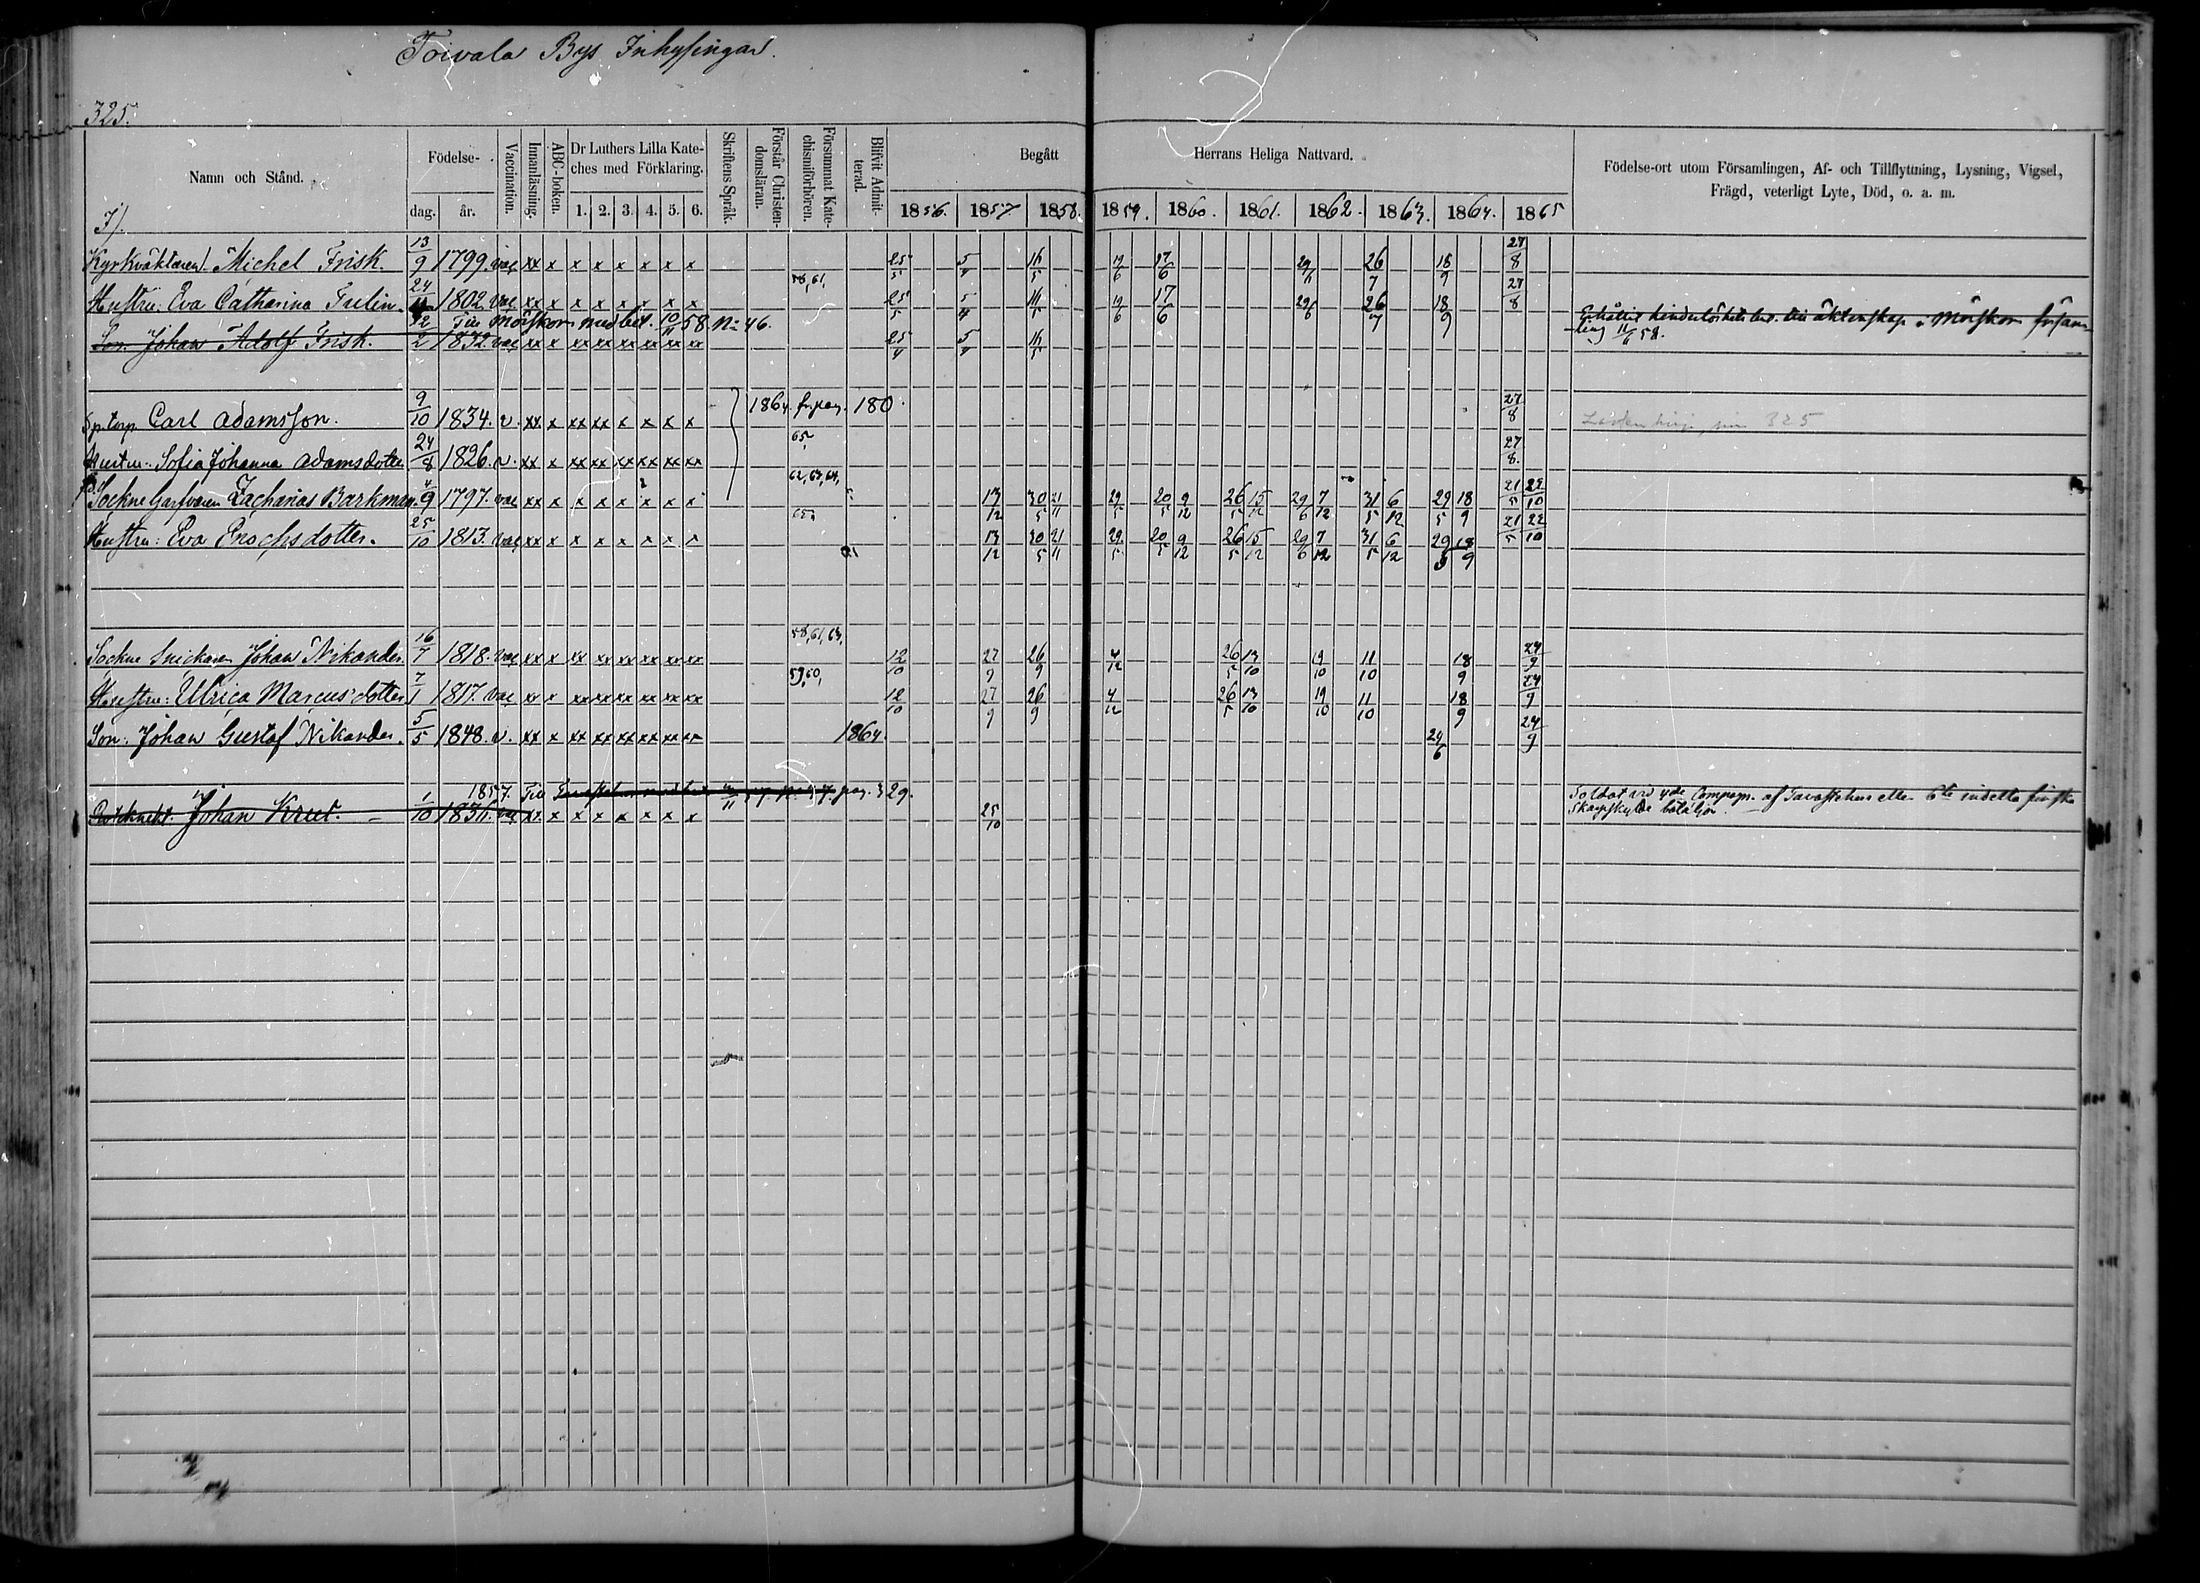 Toivala Bys Inhysingar.
325.
Namn och Stånd.
Födelse-
dag. år.
Vaccination.
Innanläsning.
ABC-boken.
Dr Luthers Lilla Kate-
ches med Förklaring.
1. 2. 3. 4. 5. 6.
Skriftens Språk.
Förstår Christen-
domsläran.
Försummat Kate-
chismiförhören.
Blifvit Admit-
terad.
Begått Herrans Heliga Nattvard.
1856. 1857 1858. 1859. 1860. 1861. 1862. 1863. 1864. 1865
Födelse-ort utom Församlingen, Af- och Tillflyttning, Lysning, Vigsel,
Frägd, veterligt Lyte, Död, o. a. m.
Kyrkväktaren Michel Frisk. 13/9 1799. vac xx x x x x x x x 25/5 5/4 16/5 19/6 17/6 29/6 26/7 18/9 27/8
58, 61,
Hustru: Eva Catharina Tulin. 24/11 1802 vac xx x x x x x x x 25/5 5/4 16/5 19/6 17/6 29/6 26/7 18/9 27/8
Till Mörskom med bet. 10/11 58 No 46.
Son: Johan Adolf Frisk. 12/2 1832 vac xx x xx xx xx xx xx xx 25/4 5/4 16/5
äktenskap i Mörskom försam-
ling 11/6 58.
1864. fr. pag. 180.
Carl Adamsson. 9/10 1834. v. xx x xx xx x x x x 27/8
325
65
Hustru: Sofia Johanna Adamsdotter 24/8 1826. v. xx x xx xx xx xx xx xx 27/8.
62, 63, 64,
Sockne Garfvaren Zacharias Barkman. 4/9 1797. vac xx x x x x x x x 13/12 30/5 21/11 29/5 20/5 9/12 26/5 15/12 29/6 7/12 31/5 6/12 29/5 18/9 21/5 22/10
65.
Hustru: Eva Enochsdotter. 25/10 1813. vac xx x x x x x x x 13/12 30/5 21/11 29/5 20/5 9/12 26/5 15/12 29/6 7/12 31/5 6/12 29/5 18/9 21/5 22/10
58, 61, 63,
Sockne Snickaren Johan Nikander. 16/7 1818. vac xx x xx xx xx xx xx xx 12/10 27/9 26/9 4/12 26/5 13/10 19/10 11/10 18/9 24/9
59, 60,
Hustru: Ulrica Marcusdotter 7/1 1817. vac xx x xx xx xx xx xx xx 12/10 27/9 26/9 4/12 26/5 13/10 19/10 11/10 18/9 24/9
Son: Johan Gustaf Nikander. 5/5 1848. v. xx x xx xx xx xx xx xx 1864. 24/6 24/9
1857. Till pag. 329.
Johan Krut. 1/10 1836. vac xx x x x x x x x 25/10
Soldat vid 4de Compagn. af Tavastehus eller 6te indelta finska
Skarpskytte bataljon.